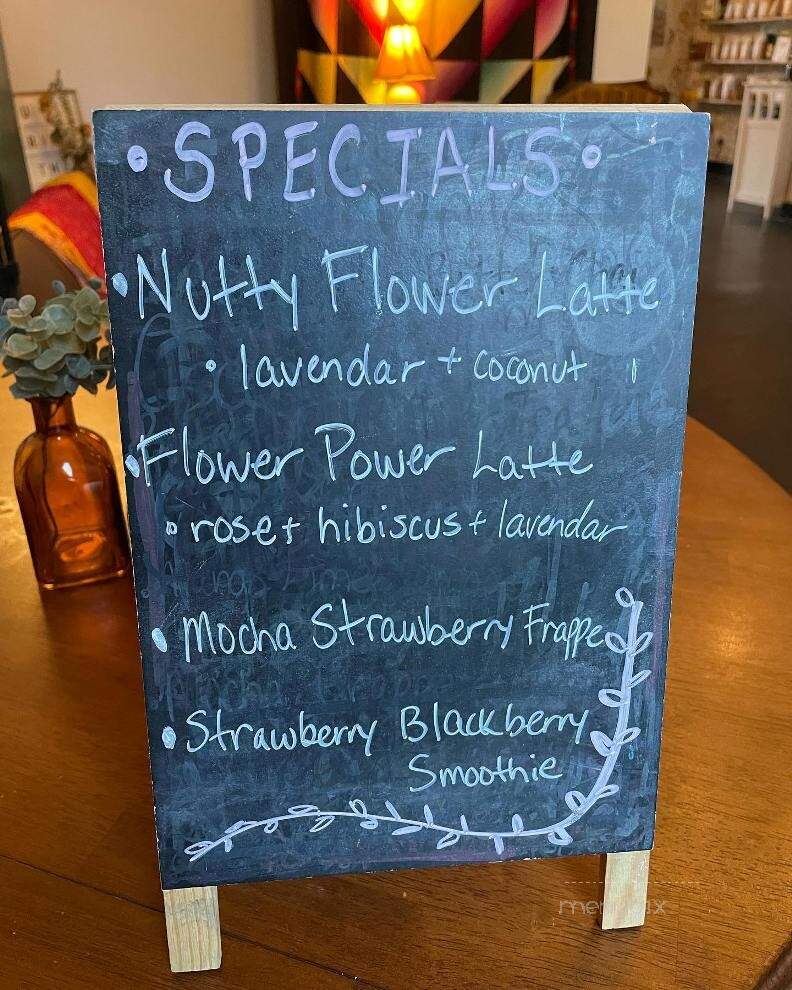 • SPECIALS •
• Nutty Flower Latte
• lavendar + coconut
• Flower Power Latte
• rose + hibiscus + lavendar
• Mocha Strawberry Frappe
• Strawberry Blackberry
Smoothie